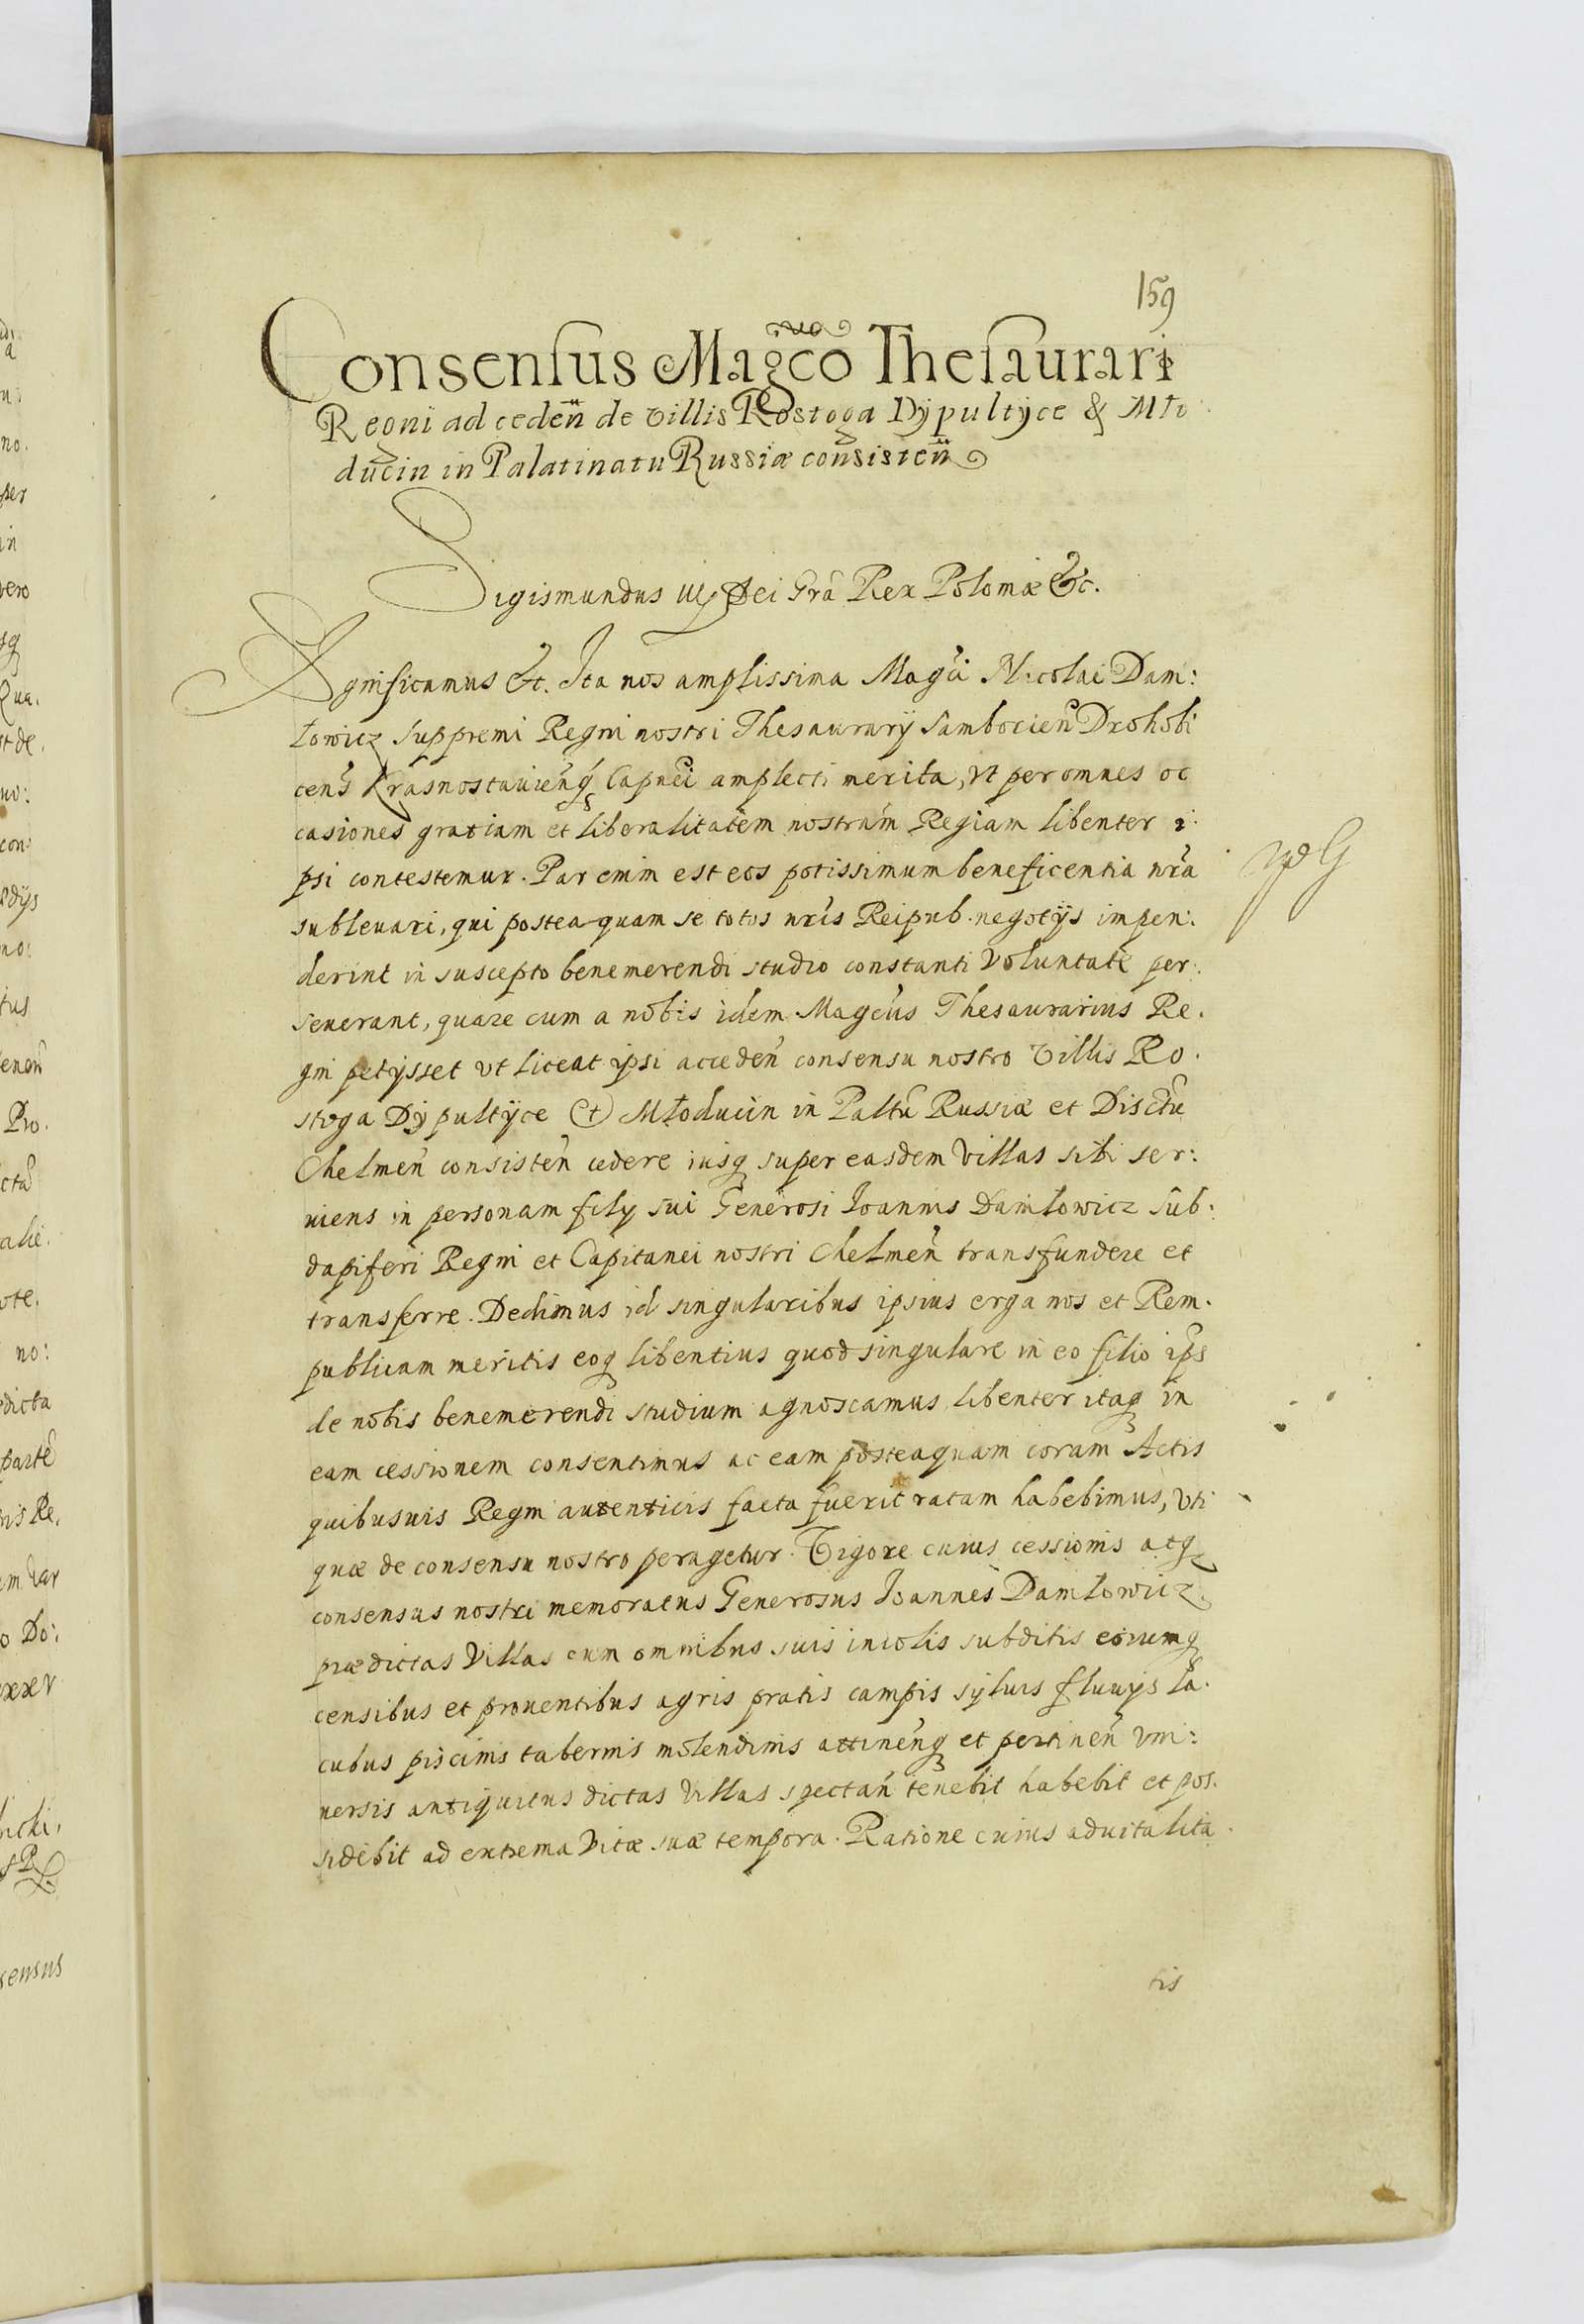 159
Consensus Magco Thesaurarị
Regni ad ceden̄ de villis Rostoga Dÿpultÿce & Mło
ducin in Palatinatu Russiæ consisten̄
Sigismundus III Dei Gra Rex Poloniæ &c.
Significamus &c. Ita nos amplissima Magci Nicolai Dani:
łowicz Suppremi Regni nostri Thesaurarij Sambocien Drohobi
cens Krasnostavienq Capnei amplecti merita, vt per omnes oc
casiones gratiam et liberalitatem nostram Regiam libenter i.
psi contestemur. Par enim est eos potissimum beneficentia nra
subleuari, qui posteaquam se totos nris Reipub. negotijs impen:
derint in suscepto benemerendi studio constanti voluntate per:
seuerant, quare cum a nobis idem Magcus Thesaurarius Re.
gni petijsset vt liceat ipsi acceden consensu nostro Villis Ro.
stoga Dÿpultÿce et Młoducin in Paltu Russiæ et Disctu
Chelmen consisten cedere iusq super easdem Villas sibi ser:
uiens in personam filij sui Generosi Ioannis Daniłowicz sub:
dapiferi Regni et Capitanei nostri Chelmen transfundere et
transferre. Dedimus id singularibus ipsius erga nos et Rem.
publicam meritis eoq libentius quod singulare in eo filio ips
de nobis benemerendi studium agnoscamus libenter itaq in
eam cessionem consentimus ac eam posteaquam coram Actis
quibusuis Regni autenticis facta fuerit ratam habebimus, vti
quæ de consensu nostro peragetur. Vigore cuius cessionis atq
consensus nostri memoratus Generosus Ioannes Daniłowicz
prædictas Villas cum omnibus suis incolis subditis eorumq
censibus et prouentibus agris pratis campis syluis fluuijs la.
cubus piscinis tabernis molendinis attinenq et pertinen vni:
uersis antiquitus dictas Villas spectan tenebit habebit et pos.
sidebit ad extrema Vitæ suæ tempora. Ratione cuius aduitalita
tis